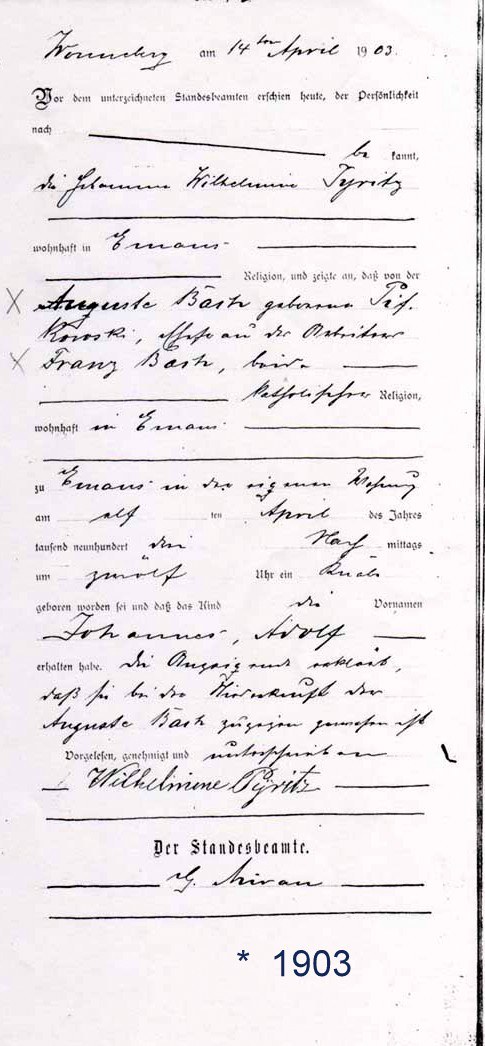 Wonneberg am 14ten April 1903.
Vor dem unterzeichneten Standesbeamten erschien heute, der Persönlichkeit
nach
be kannt,
die Hebamme Wilhelmine Pyritz
wohnhaft in Emaus
Religion, und zeigte an, daß von der
X Auguste Bash geborene
Ehefrau des Arbeiters
X Franz Bash, beide
katholischer Religion,
wohnhaft in Emaus
zu Emaus in der eigenen Wohnung
am elf ten April des Jahres
tausend neunhundert drei Nach mittags
um zwölf Uhr ein Knabe
geboren worden sei und daß das Kind die Vornamen
Johannes, Adolf
erhalten habe. Die Anzeigende erklärt,
daß sie bei der Niederkunft der
Auguste Bash zugegen gewesen ist
Vorgelesen, genehmigt und unterschrieben
Wilhelmine Pyritz
Der Standesbeamte.
* 1903